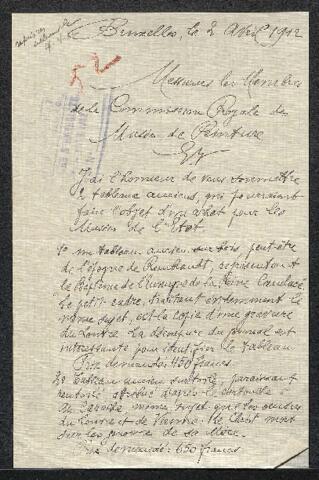 Bruxelles, le 2 Avril 1912
52
Messieurs les Membres
de la Commission Royale des
Musées de Peinture
J'ai l'honneur de vous soumettre
2 tableaux anciens, qui pourraient
faire l'objet d'un achat pour les
Musées de l'Etat.
1o un tableau ancien sur bois peut-être
de l'époque de Rembrandt, représentant
le Baptême de l'Eunuque de la Reine Candace.
Le petit cadre, traitant le
même sujet, est la copie d'une gravure
du Louvre. La du journal est
intéressante pour identifier le tableau.
Prix demandé: 450 francs.
2o Tableau ancien sur toile, paraissant
d'après le
même sujet que les œuvres
du Louvre et de Vienne: le Christ mort
sur les genoux de sa Mère.
Prix demandé: 650 francs